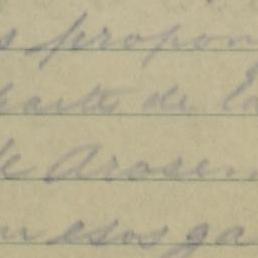 s propon
parte de la
de Arosem
n esos ga